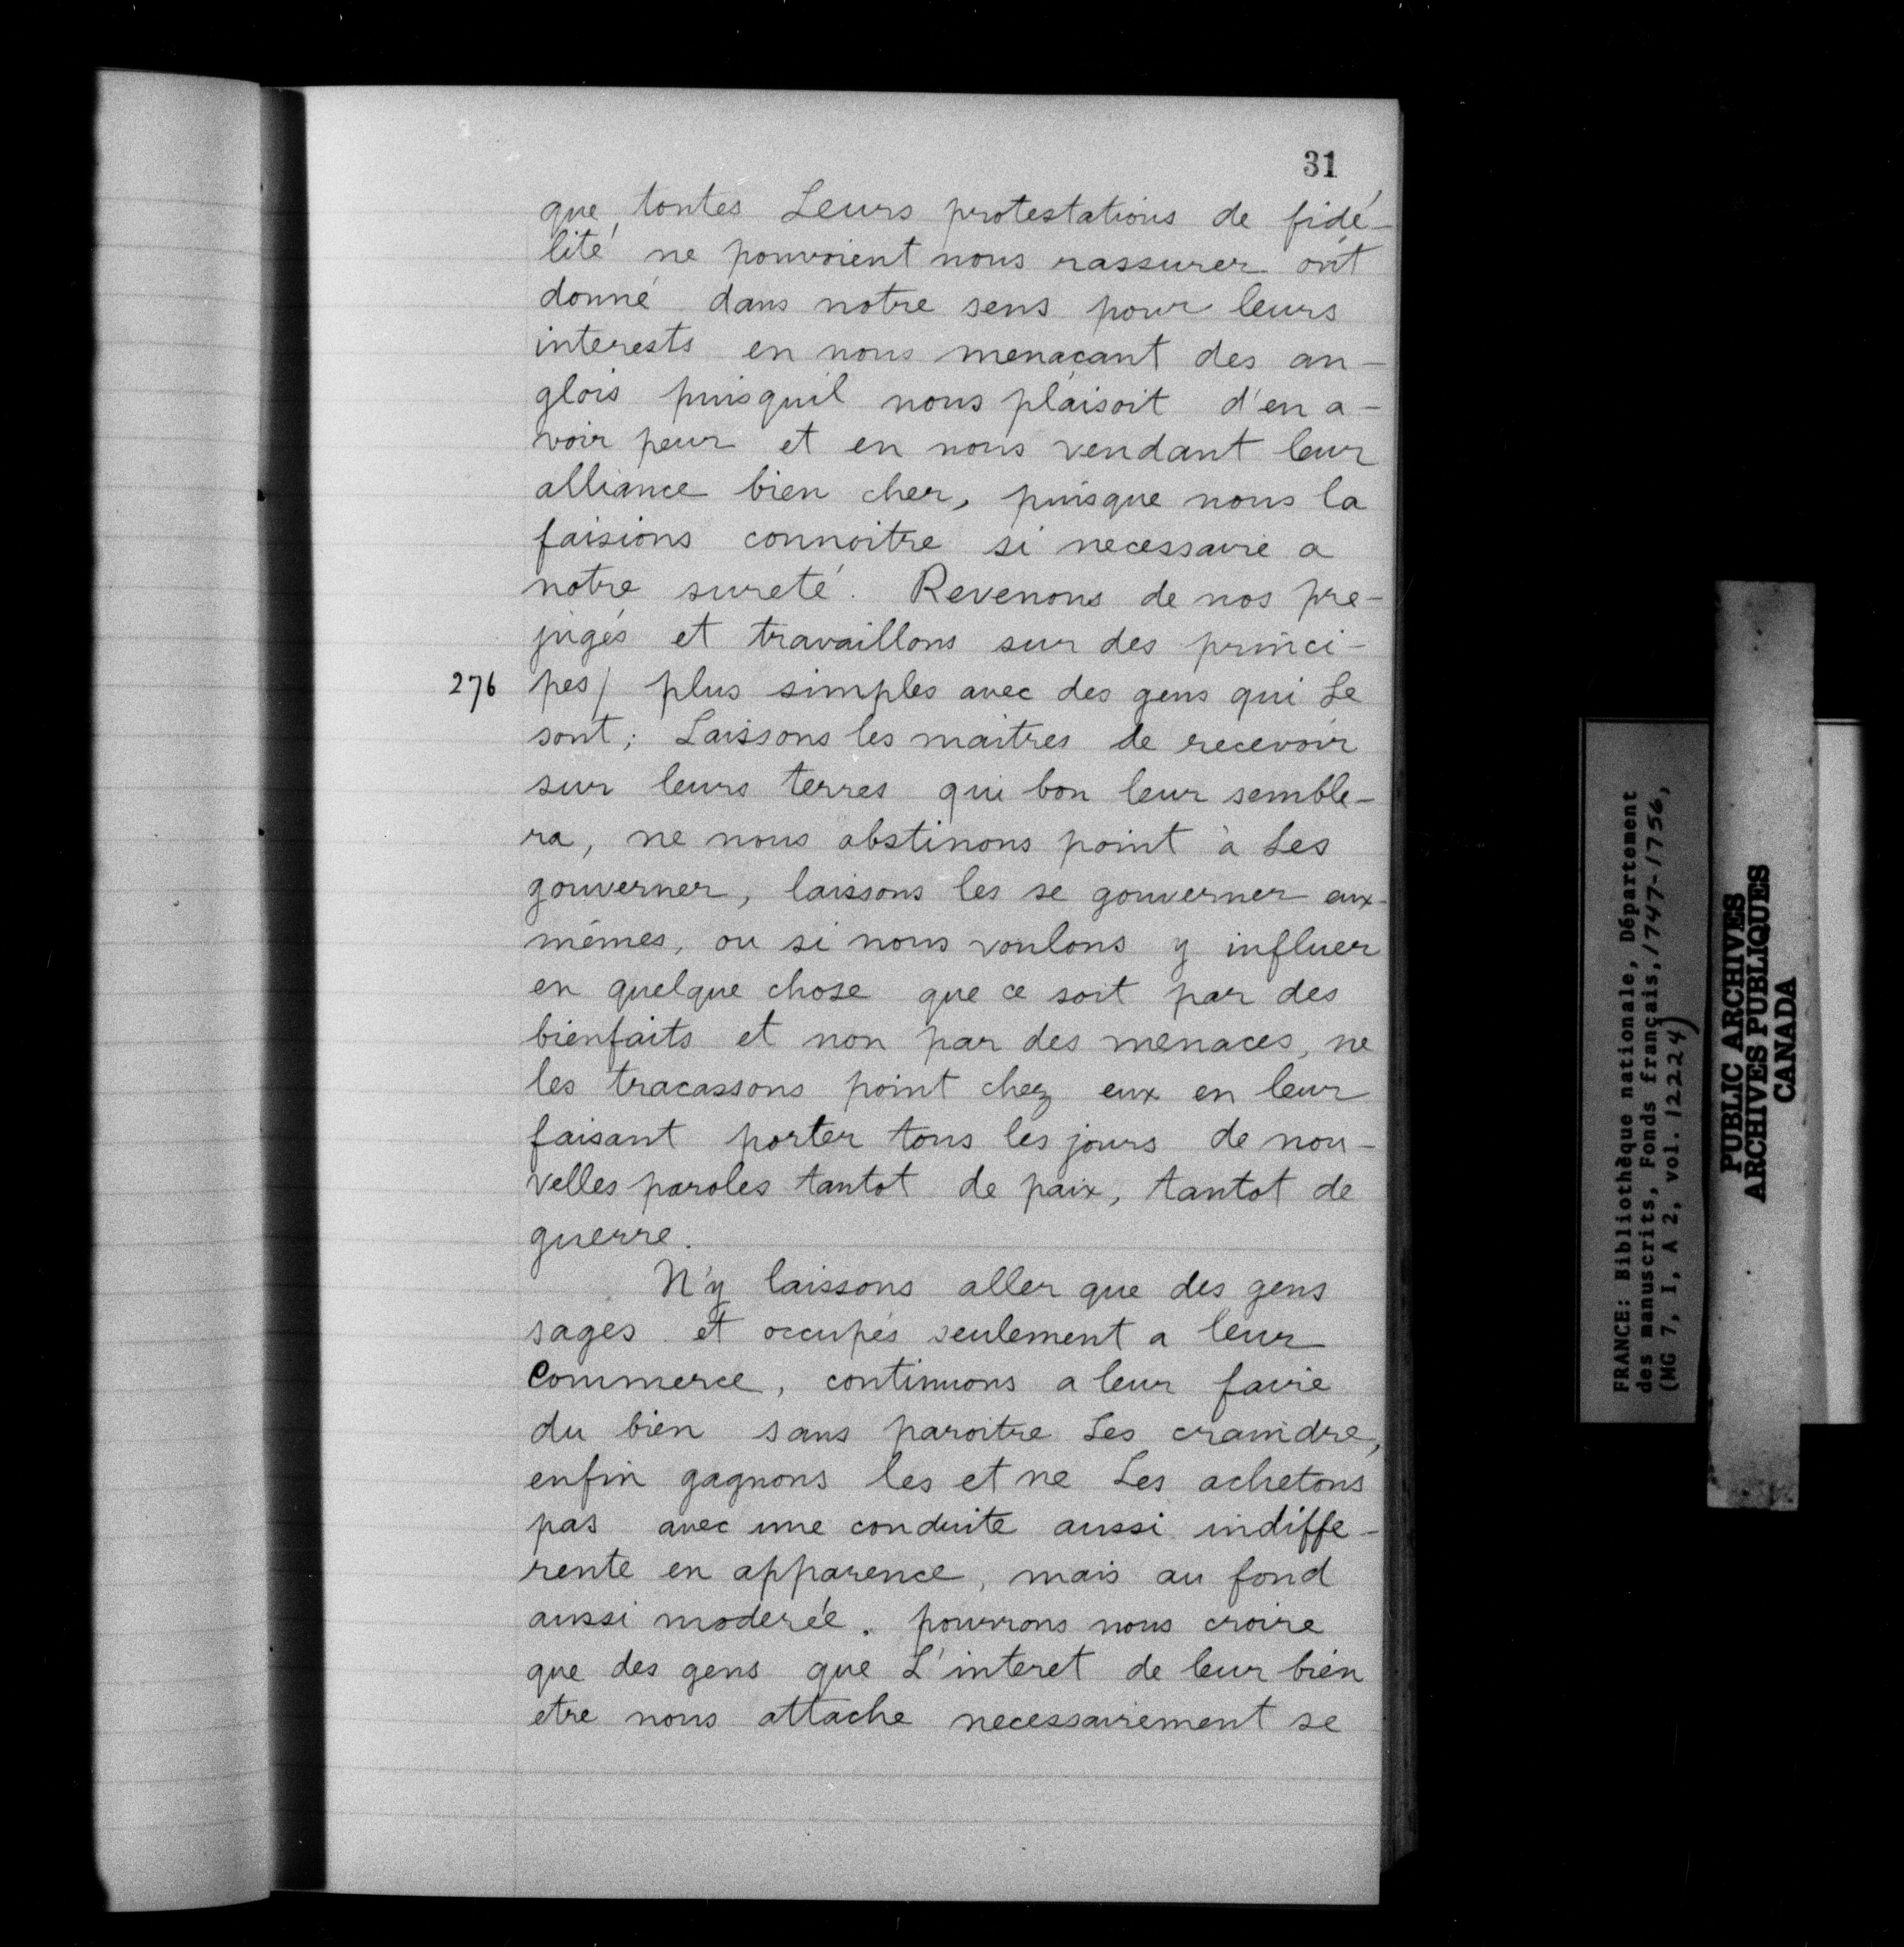 31
que, toutes Leurs protestations de fidé-
lité ne pouvoient nous rassurer ont
donné dans notre sens pour leurs
interests en nous menaçant des an-
glois puisquil nous plaisoit d'en a-
voir peur et en nous vendant leur
alliance bien cher, puisque nous la
faisions connoitre si necessaire a
notre sureté. Revenons de nos pre-
jugés et travaillons sur des princi-
276 pes/ plus simples avec des gens qui Le
sont; Laissons les maitres de recevoir
sur leurs terres qui bon leur semble-
ra, ne nous obstinons point à Les
gouverner, laissons les se gouverner eux-
mêmes, ou si nous voulons y influer
en quelque chose que ce soit par des
bienfaits et non par des menaces, ne
les tracassons point chez eux en leur
faisant porter tous les jours de nou-
velles paroles tantot de paix, tantot de
guerre.
N'y laissons aller que des gens
sages et occupés seulement a leur
Commerce, continuons a leur faire
du bien sans paroitre Les craindre,
enfin gagnons les et ne Les achetons
pas avec une conduite aussi indiffe-
rente en apparence, mais au fond
aussi moderée. pourrons nous croire
que des gens que L'interet de leur bien
etre nous attache necessairement se
FRANCE: Bibliothèque nationale, Département
des manuscrits, Fonds français, 1747-1756,
(MG 7, I, A 2, vol. 12224)
PUBLIC ARCHIVES
ARCHIVES PUBLIQUES
CANADA